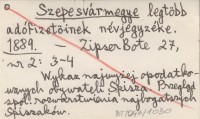 Szepesvármegye legtöbb
adófizetőinek névjegyzéke.
1889. – Zipser Bote 27,
nr 2: 3-4
Wykaz najwyżej opodatko-
wanych obywateli Spisza. Przegląd
społ. rozwarstwienia najbogatszych
Spiszaków.